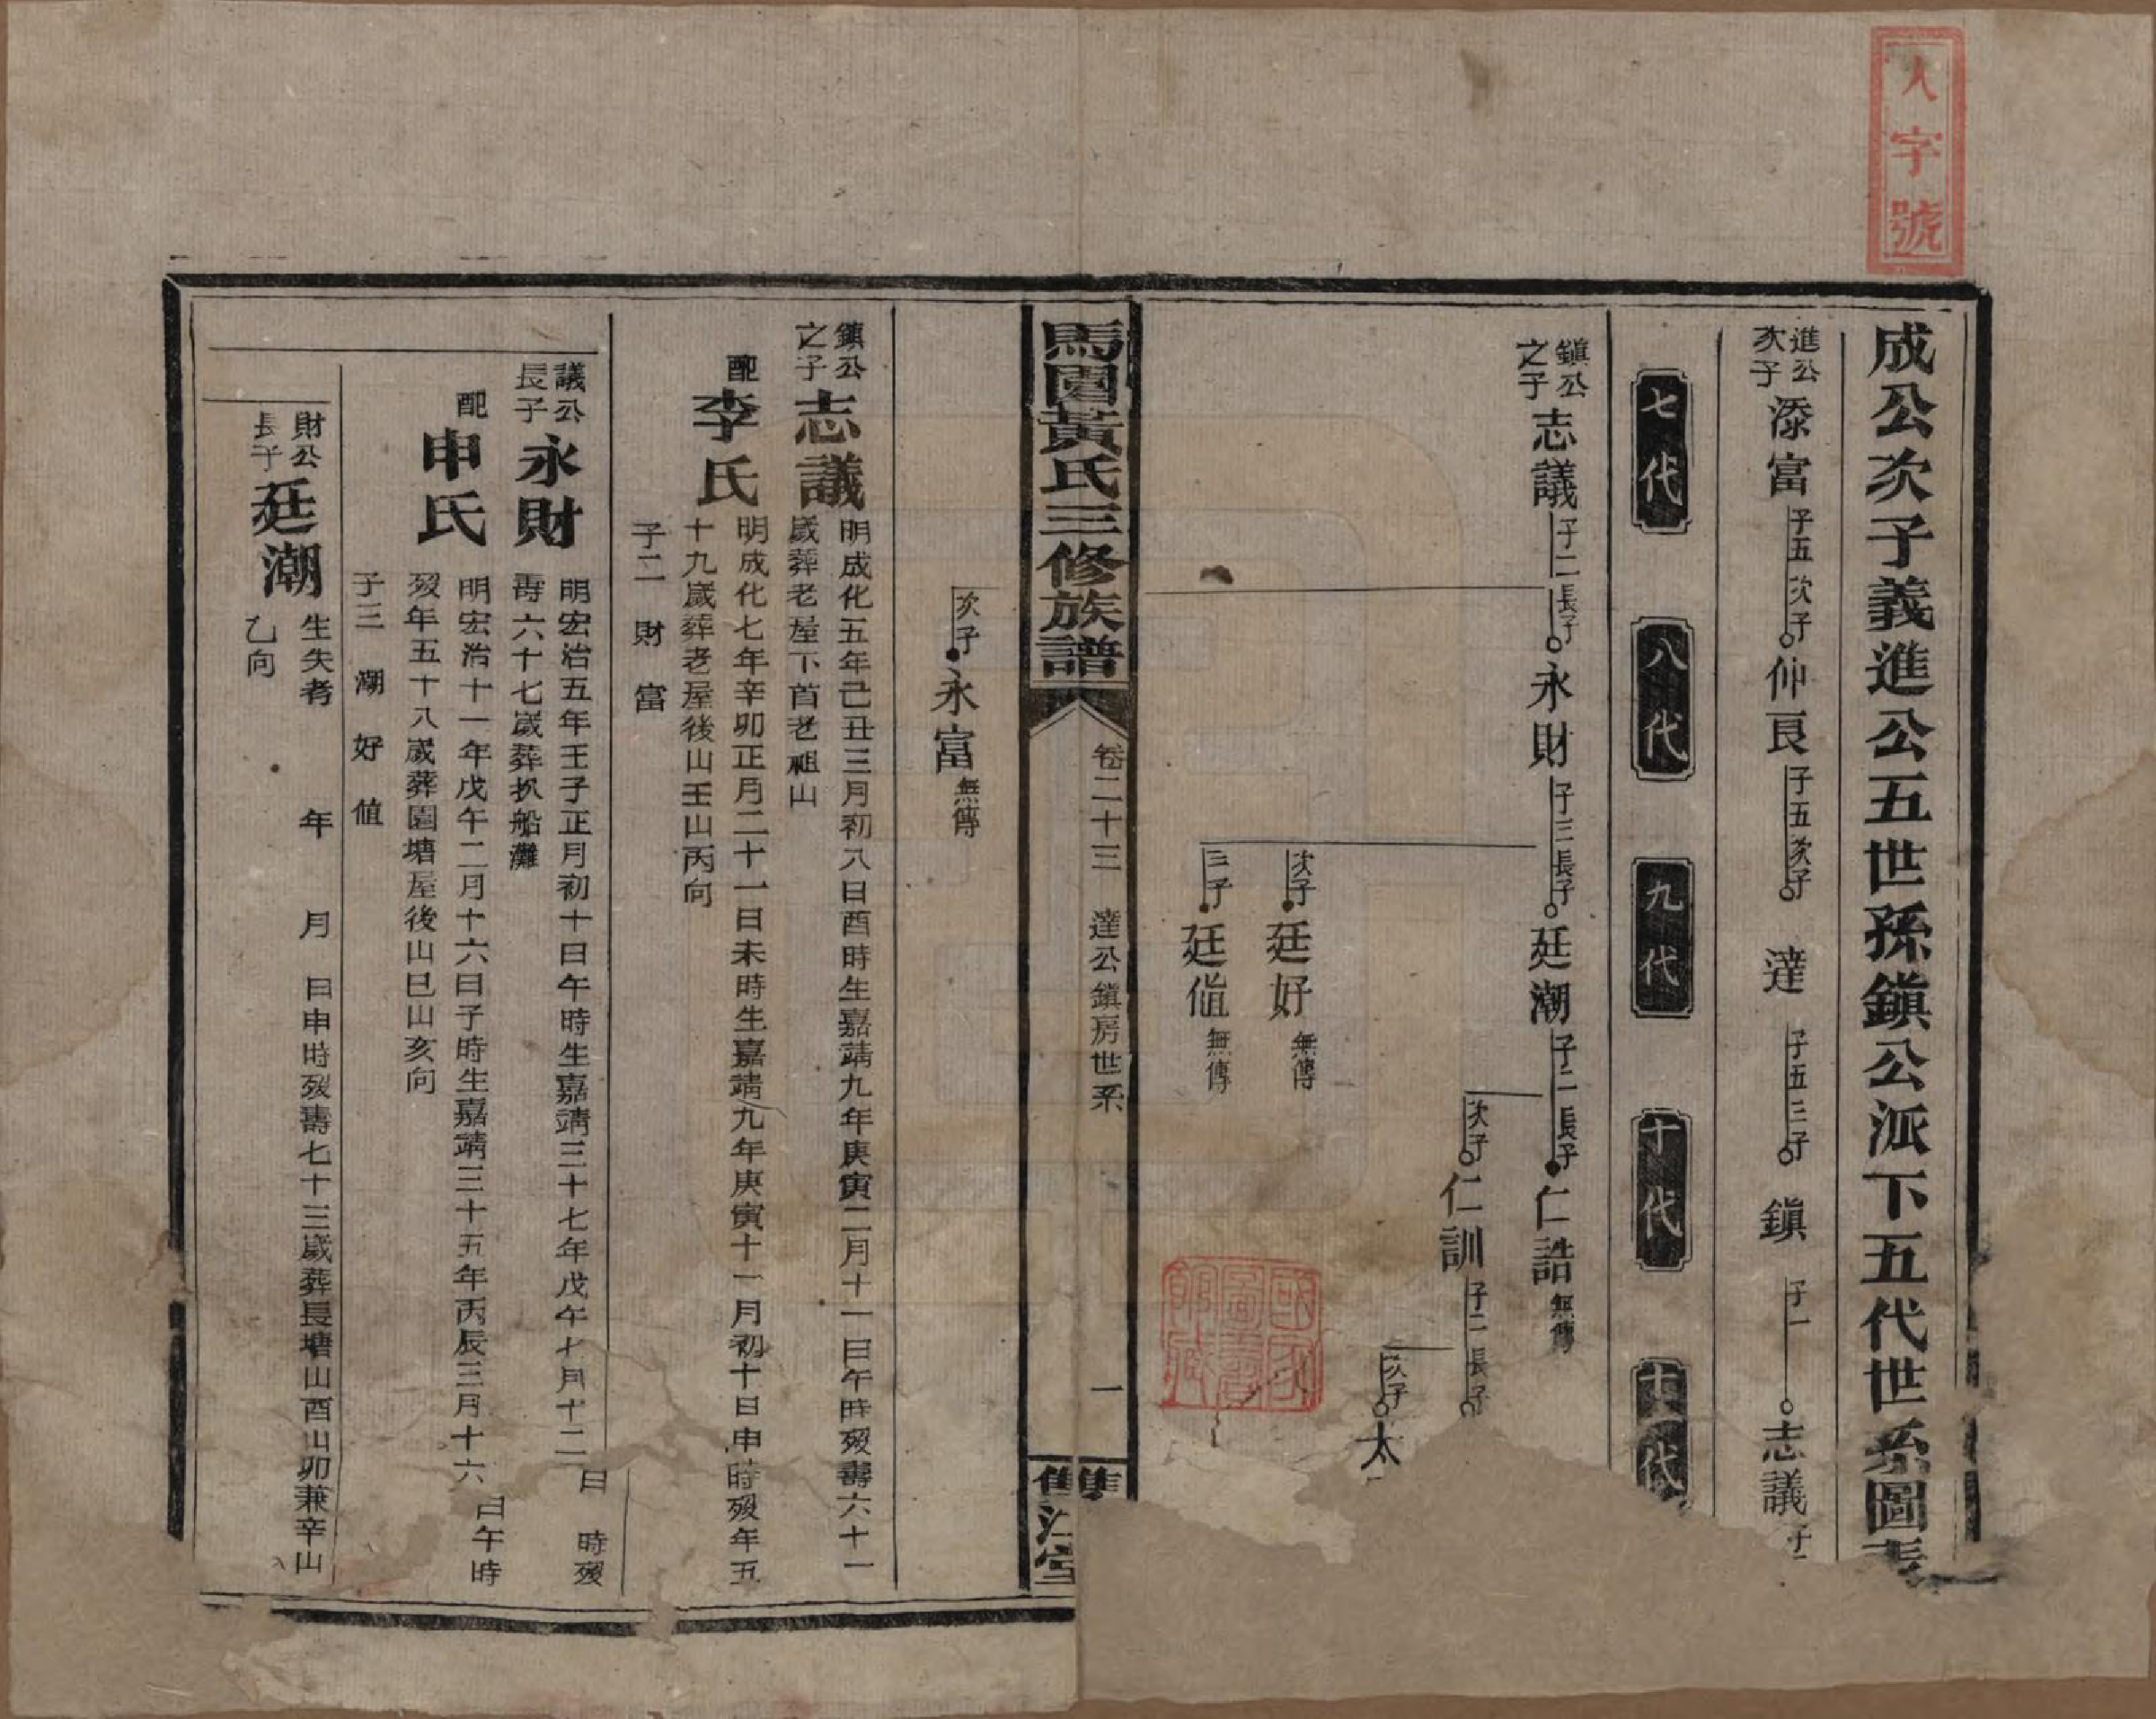 人字號
成公次子義進公五世孫鎮公派下五代世系圖表
進公次子 添富 子五次子 仲良 子五次子 達 子五三子 鎮 子一 志議
七代 八代 九代 十代 十一代
鎮公之子 志議 子二 長子 永財 子三 長子 廷潮 子二 長子 仁誥 無傳
次子 仁訓 子二 長子
次子 太
次子 廷好 無傳
三子 廷値 無傳
馬園黃氏三修族譜 卷二十三 達公鎮房世系 一 雙江堂
次子 永富 無傳
鎮公之子 志議 明成化五年己丑三月初八日酉時生嘉靖九年庚寅二月十一日午時歿壽六十一
歲葬老屋下首老祖山
配 李氏 明成化七年辛卯正月二十一日未時生嘉靖九年庚寅十一月初十日申時歿年五
十九歲葬老屋後山壬山丙向
子二 財 富
議公長子 永財 明宏治五年壬子正月初十日午時生嘉靖三十七年戊午七月十二日 時歿
壽六十七歲葬扒船灘
配 申氏 明宏治十一年戊午二月十六日子時生嘉靖三十五年丙辰三月十六日午時
歿年五十八歲葬園塘屋後山巳山亥向
子三 潮 好 値
財公長子 廷潮 生失考 年 月 日申時歿壽七十三歲葬長塘山酉山卯兼辛山
乙向